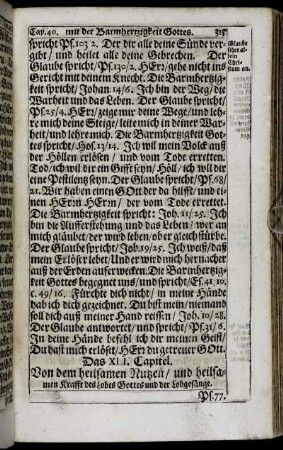 Cap.40. mit der Barmhertzigkeit Gottes. 315
spricht Ps.103 2. Der dir alle deine Sünde ver-
gibt/ und heilet alle deine Gebrechen. Der
Glaube spricht/ Ps.130/2. HErr/ gehe nicht ins
Gericht mit deinem Knecht. Die Barmhertzig-
keit spricht/ Johan 14/6. Ich bin der Weg/ die
Warheit und das Leben. Der Glaube spricht/
Ps.25/4. HErr/ zeige mir deine Wege/ und leh-
re mich deine Steige/ leite mich in deiner War-
heit/ und lehre mich. Die Barmhertzigkeit Got-
tes spricht/ Hos.13/14. Ich wil mein Volck auß
der Höllen erlösen/ und vom Tode erretten.
Tod/ ich wil dir ein Gifft seyn/ Höll/ ich wil dir
eine Pestilentz seyn. Der Glaube spricht/ Ps.68/
21. Wir haben einen GOtt der da hilfft/ und ei-
nen HErrn HErrn/ der vom Tode errettet.
Die Barmhertzigkeit spricht: Joh. 11/25. Ich
bin die Aufferstehung und das Leben/ wer an
mich gläubet/ der wird leben/ ober gleich stürbe.
Der Glaube spricht/ Job.19/25. Ich weiß/ daß
mein Erlöser lebet/ Und er wird mich hernacher
auß der Erden aufferwecken. Die Barmhertzig-
keit Gottes begegnet uns/ und spricht/ Es. 41.10.
c. 49/16. Fürchte dich nicht/ in meine Hände
hab ich dich gezeichnet. Du bist mein/ niemand
soll dich auß meiner Hand reissen/ Joh. 10/28.
Der Glaube antwortet/ und spricht/ Ps.31/6.
In deine Hände befehl ich dir meinen Geist/
Du hast mich erlöset/ HErr du getreuer GOtt.
Das XLI. Capitel.
Von dem heilsamen Nutzen/ und heilsa-
men Krafft des Lobes Gottes und der Lobgesänge.
Ps.77.
Glaube